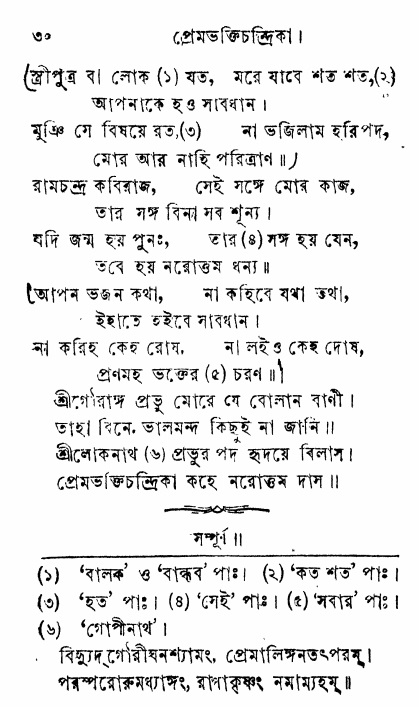 ৩০ প্রেমভক্তিচন্দ্রিকা।
(স্ত্রীপুত্র বা লোক (১) যত, মরে যাবে শত শত,(২)
আপনাকে হও সাবধান।
মুঞি সে বিষয়ে রত,(৩) না ভজিলাম হরিপদ,
মোর আর নাহি পরিত্রাণ॥)
রামচন্দ্র কবিরাজ, সেই সঙ্গে মোর কাজ,
তার সঙ্গ বিনা সব শূন্য।
যদি জন্ম হয় পুনঃ, তার (৪) সঙ্গ হয় যেন,
তবে হয় নরোত্তম ধন্য॥
(আপন ভজন কথা, না কহিবে যথা তথা,
ইহাতে হইবে সাবধান।
না করিহ কেহ রোষ, না লইও কেহ দোষ,
প্রণমহ ভক্তের (৫) চরণ॥)
শ্রীগৌরাঙ্গ প্রভু মোরে যে বোলান বাণী।
তাহা বিনে, ভালমন্দ কিছুই না জানি॥
শ্রীলোকনাথ (৬) প্রভুর পদ হৃদয়ে বিলাস।
প্রেমভক্তিচন্দ্রিকা কহে নরোত্তম দাস॥
সম্পূর্ণ॥
(১) 'বালক' ও 'বান্ধব' পাঃ। (২) 'কত শত' পাঃ।
(৩) 'হত' পাঃ। (৪) 'সেই' পাঃ। (৫) 'সবার' পাঃ।
(৬) 'গোপীনাথ'।
বিদ্যুদ্গৌরীঘনশ্যামং, প্রেমালিঙ্গনতৎপরম্।
পরস্পরোরুমধ্যাঙ্গং, রাধাকৃষ্ণং নমাম্যহম্॥